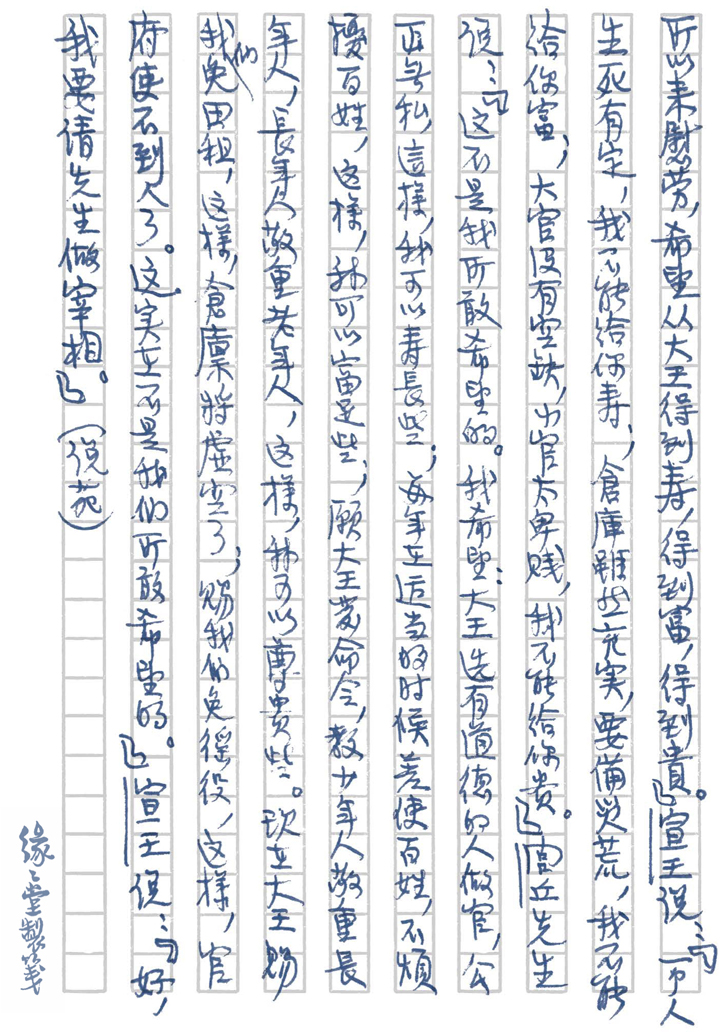 所以来慰劳，希望从大王得到寿，得到富，得到贵。」宣王说：「一个人
生死有定，我不能给你寿；倉庫雖然充实，要備災荒，我不能
给你富；大官没有空缺，小官太卑贱，我不能给你贵。」閭丘先生
说：「这不是我所敢希望的。我希望：大王选有道德的人做官，公
正無私，這樣，我可以寿長些；每年在适当的时候差使百姓，不煩
擾百姓，这樣，我可以富足些；願大王发命令，教少年人敬重長
年人，長年人敬重老年人，这樣，我可以尊貴些。现在大王赐
我们免田租，这樣，倉廩將虚空了；赐我们免徭役，这樣，官
府使不到人了。这实在不是我们所敢希望的。」宣王说：「好，
我要请先生做宰相」。（说苑）
缘缘堂製笺